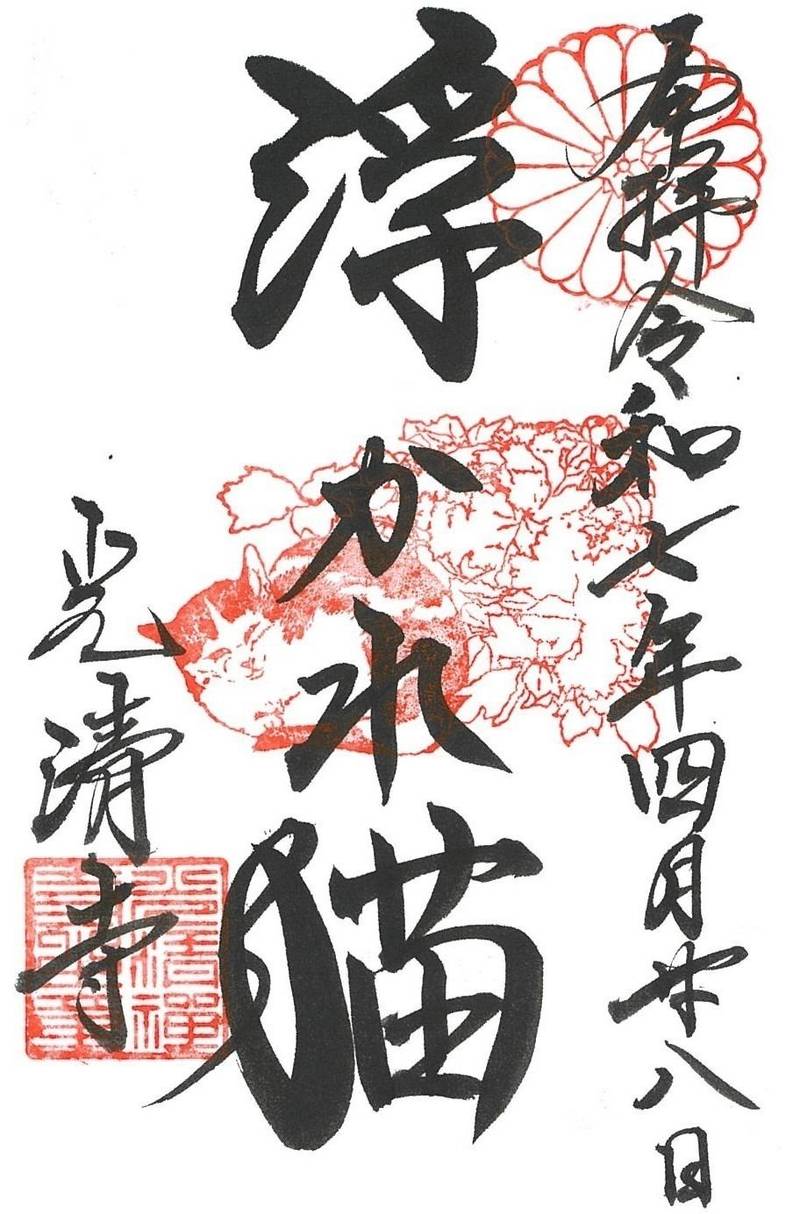 奉拝令和七年四月廿八日
浮かれ猫
光清寺